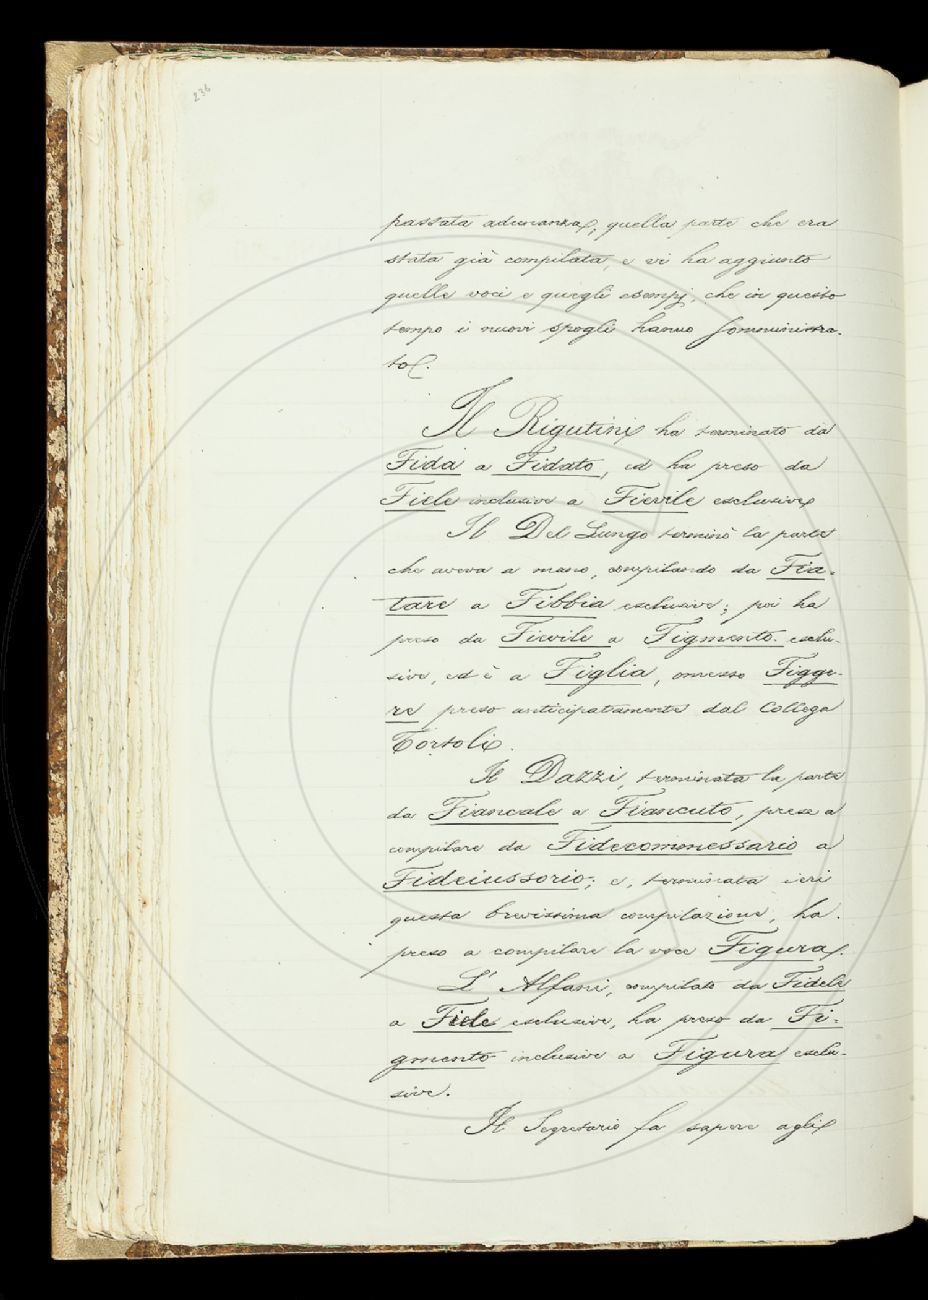 236
passata adunanza, quella parte che era
stata già compilata, e vi ha aggiunto
quelle voci e quegli esempj, che in questo
tempo i nuovi spogli hanno somministra-
to.
Il Rigutini ha terminato da
Fida a Fidato, ed ha preso da
Fiele inclusive a Fievile esclusive
Il Del Lungo terminò la parte
che aveva a mano, compilando da Fia-
tare a Fibbia esclusive; poi ha
preso da Fievile a Figmento esclu-
sive, ed è a Figlia, omesso Figge-
re preso anticipatamente dal Collega
Tortoli.
Il Dazzi, terminata la parte
da Fiancale a Fiancuto, prese a
compilare da Fidecommessario a
Fideiussorio; e, terminata ieri
questa brevissima compilazione, ha
preso a compilare la voce Figura.
L' Alfani, compilato da Fidele
a Fiele esclusive, ha preso da Fi-
gmento inclusive a Figura esclu-
sive.
Il Segretario fa sapere agli